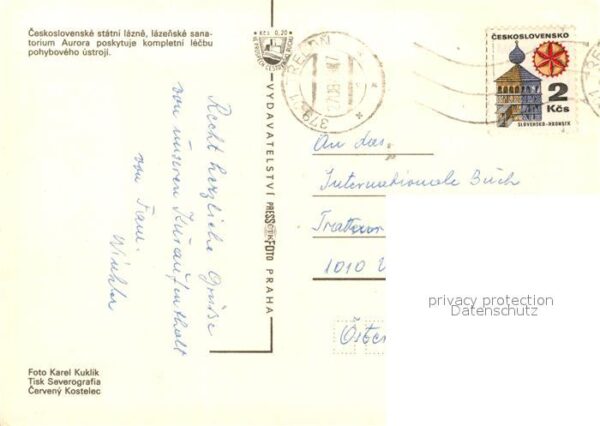 Československé státní lázně, lázeňské sana-
torium Aurora poskytuje kompletní léčbu
pohybového ústrojí.
Kčs 0,20
ČESKOSLOVENSKO
2
Kčs
SLOVENSKO-HRONSEK
379 01
VYDAVATELSTVÍ PRESSFOTO PRAHA
Recht herzliche Grüsse
von unseren Kuraufenthalt
von Fam.
Winkler
An das
Internationale Buch
1010
privacy protection
Datenschutz
Foto Karel Kuklík
Tisk Severografia
Červený Kostelec